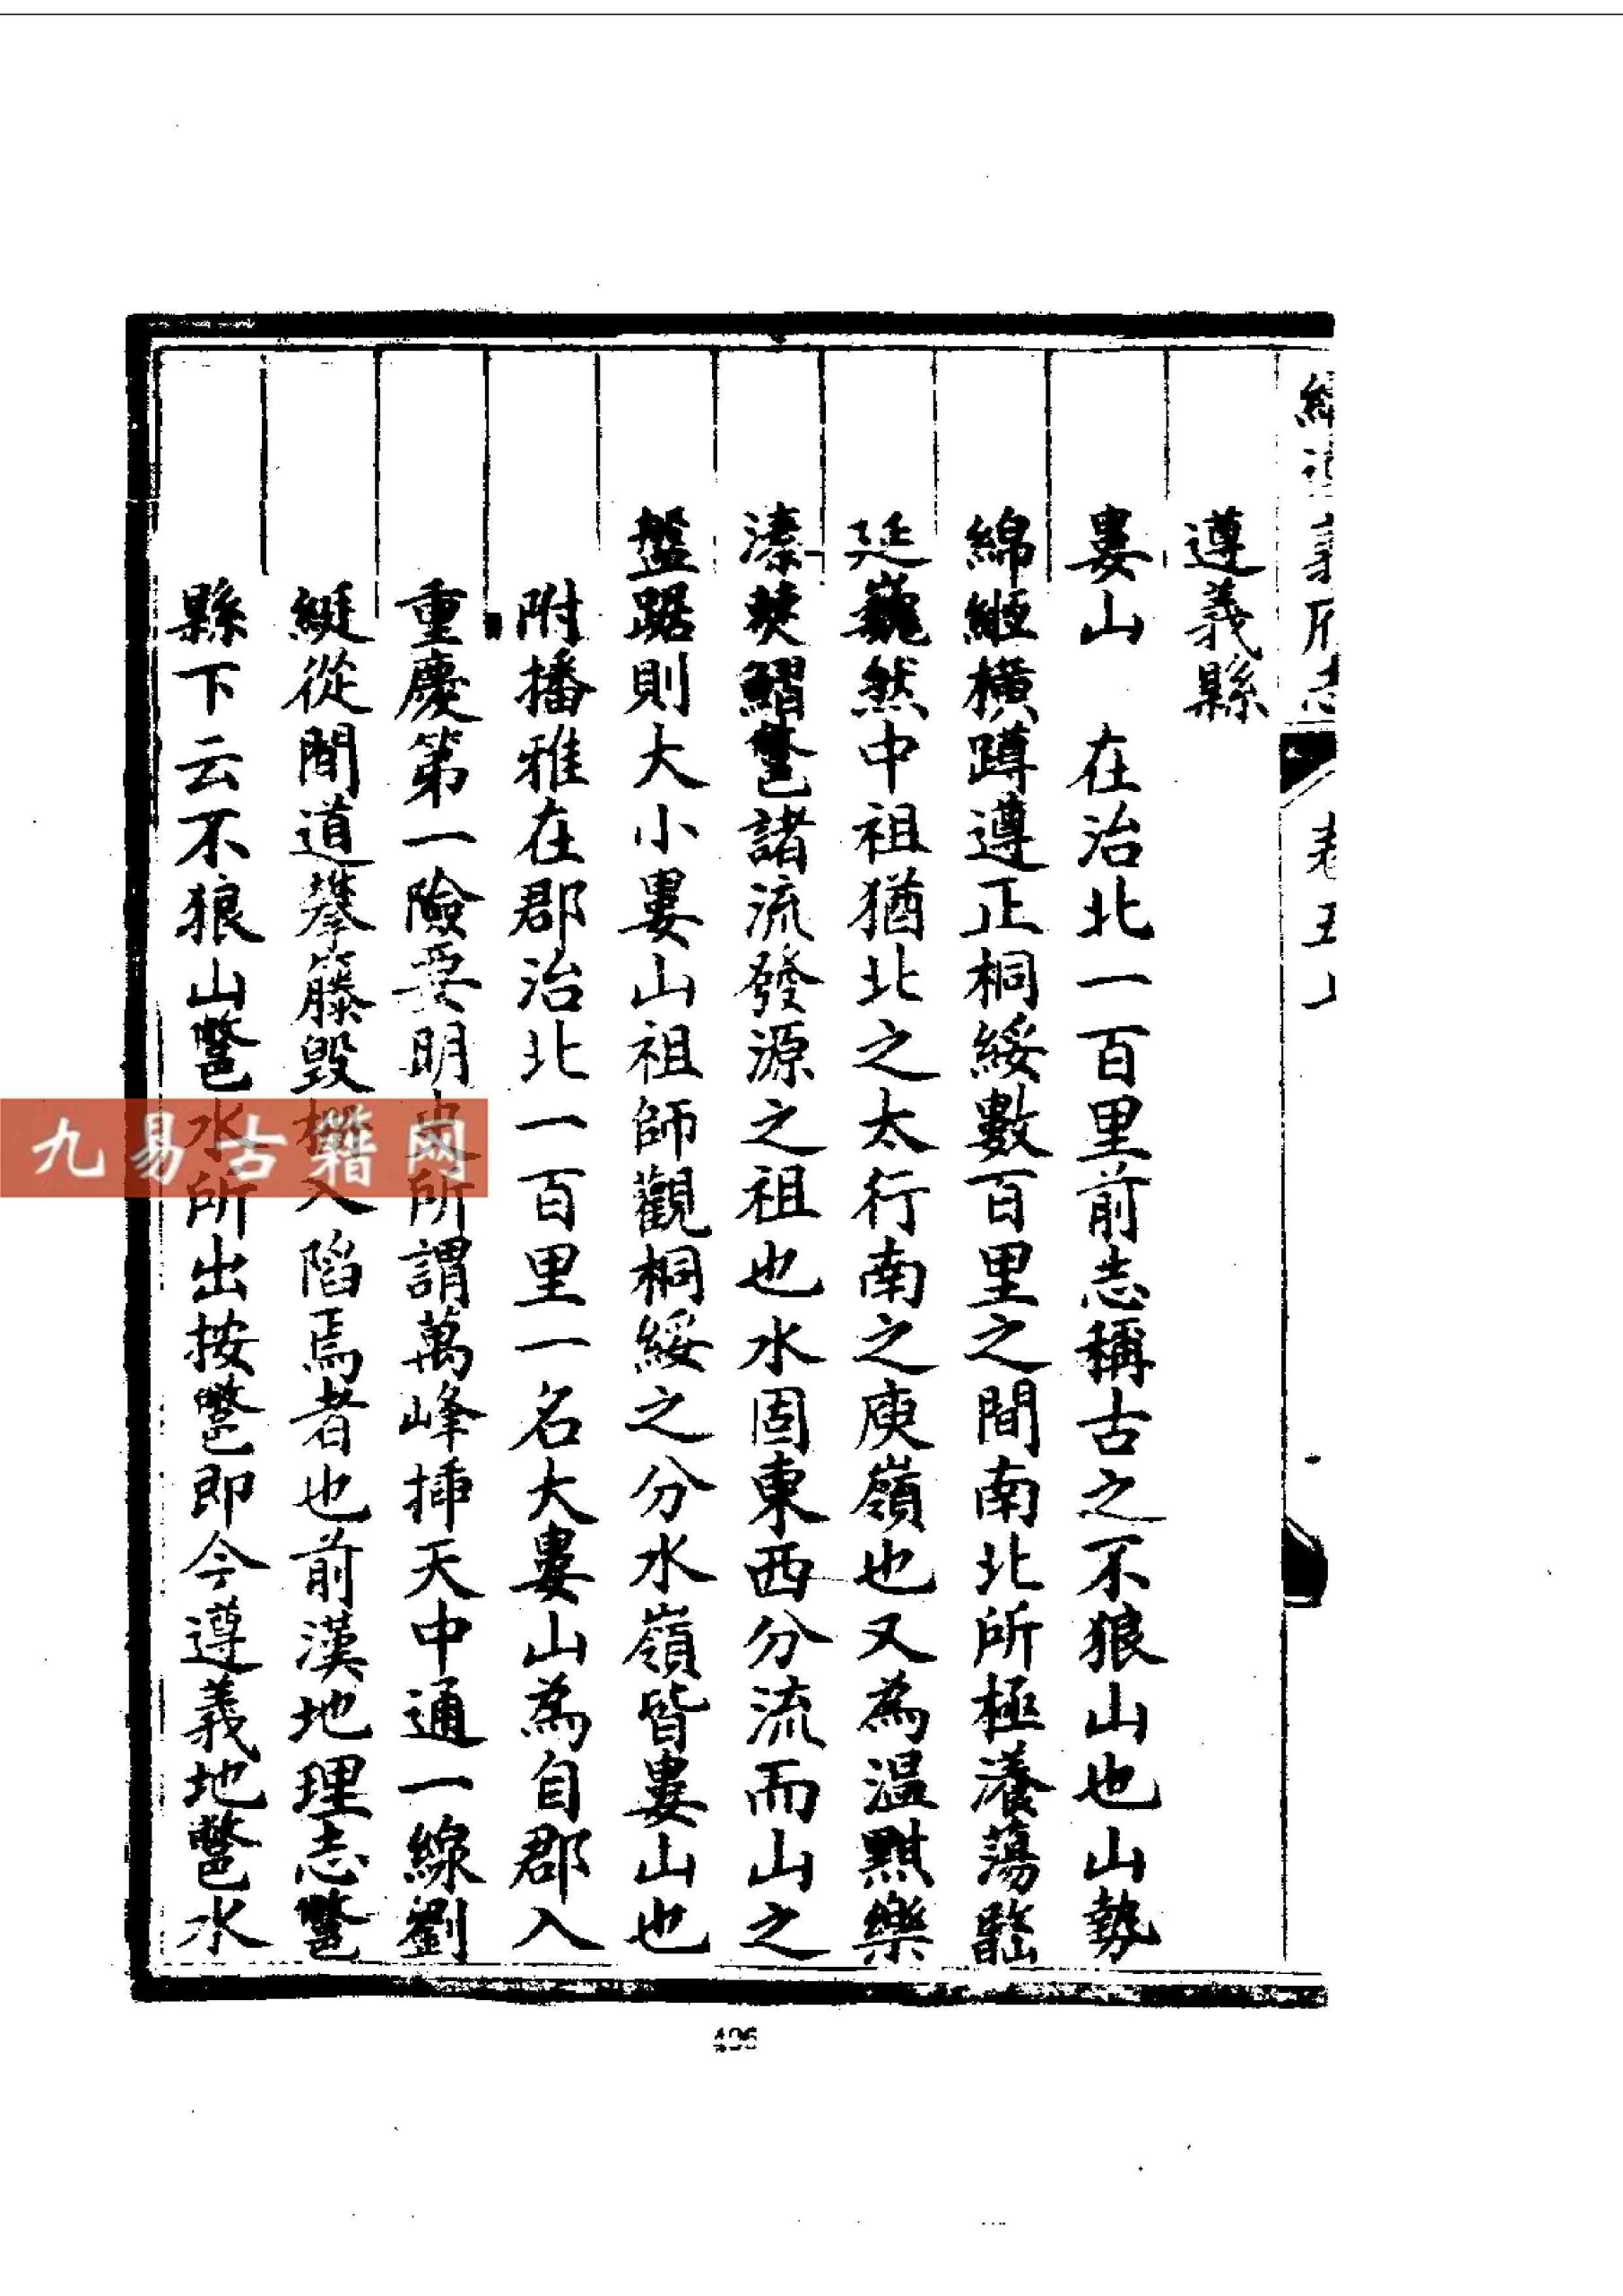 遵義縣
婁山　在治北一百里前志稱古之不狼山也山勢
綿縆橫蹲遵正桐綏數百里之間南北所極瀁蕩
廷巍然中祖猶北之太行南之庾嶺也又為温黚樂
溱僰鰼鄨諸流發源之祖也水固東西分流而山之
盤踞則大小婁山祖師觀桐綏之分水嶺皆婁山也
附播雅在郡治北一百里一名大婁山為自郡入
重慶第一險要明史所謂萬峰揷天中通一線劉
綎從間道攀籐毀柵入陷焉者也前漢地理志鄨
縣下云不狼山鄨水所出按鄨即今遵義地鄨水
續遵義府志
卷五上
九易古籍网
406